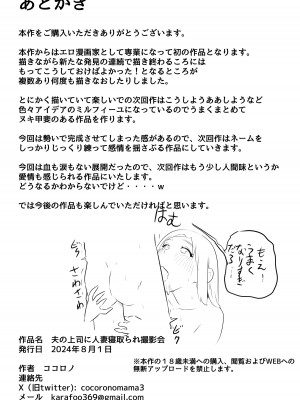 あとがき
本作をご購入いただきありがとうございます。
本作からはエロ漫画家として専業になって初の作品となります。
描きながら新たな発見の連続で描き終わるころには
もってこうしておけばよかった！となるところが
複数あり何度も描きなおしたりしました。
とにかく描いていて楽しいでの次回作はこうしようああしようなど
色々アイデアのミルフィーユになっているのでうまくまとめて
ヌキ甲斐のある作品を作ります。
今回は勢いで完成させてしまった感があるので、次回作はネームを
しっかりじっくり練って感情を揺さぶる作品にしていきます。
今回は血も涙もない展開だったので、次回作はもう少し人間味というか
愛情も感じられる作品にいたします。
どうなるかわからないでけど・・・・w
では今後の作品も楽しんでいただければと思います。
はむ
もえ、
うまく
なりすぎ
だろ…
ど
さわさわ
作品名　夫の上司に人妻寝取られ撮影会
発行日　2024年８月１日
※本作の１８歳未満への購入、閲覧およびWEBへの
無断アップロードを禁止します。
作者　ココロノ
連絡先
X（旧twitter）：cocoronomama3
メール　karafoo369@gmail.com